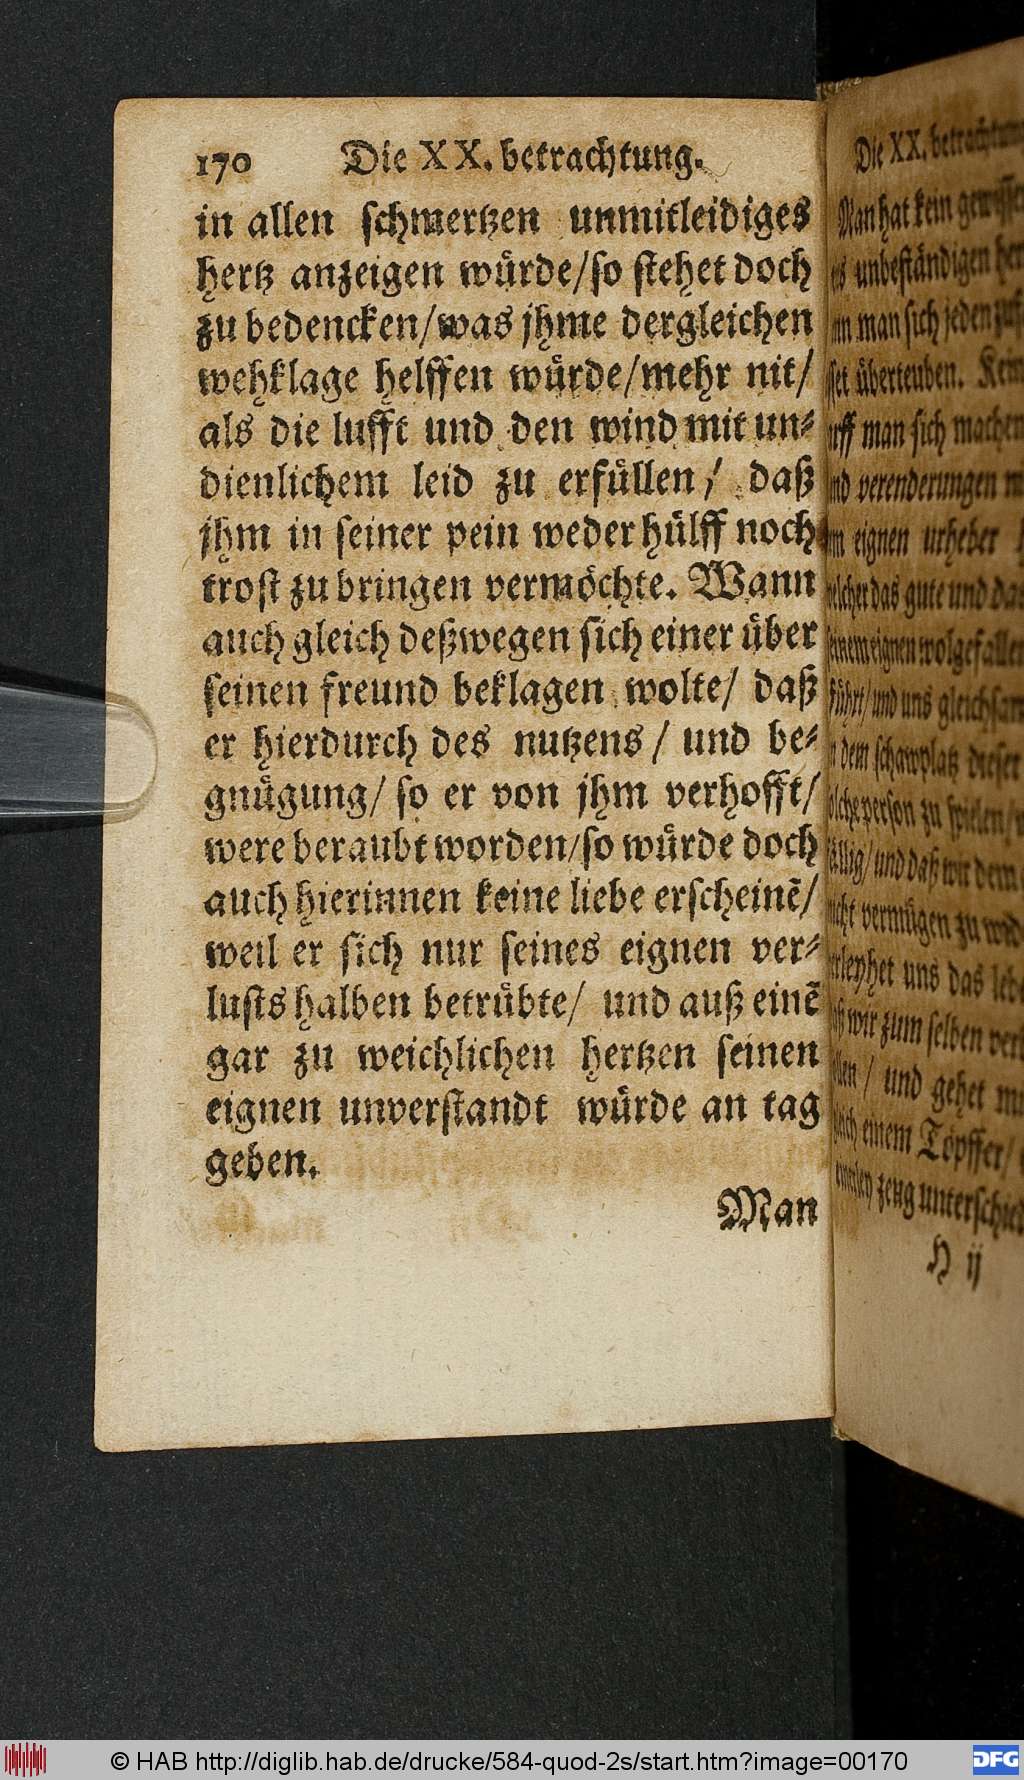 170 Die XX. betrachtung.
in allen schmertzen unmitleidiges
hertz anzeigen würde/so stehet doch
zu bedencken/was jhme dergleichen
wehklage helffen würde/mehr nit/
als die lufft und den wind mit un-
dienlichem leid zu erfüllen/ daß
jhm in seiner pein weder hülff noch
trost zu bringen vermöchte. Wann
auch gleich deßwegen sich einer über
seinen freund beklagen wolte/ daß
er hierdurch des nutzens / und be-
gnügung/ so er von jhm verhofft/
were beraubt worden/so würde doch
auch hierinnen keine liebe erscheinē/
weil er sich nur seines eignen ver-
lusts halben betrübte/ und auß einē
gar zu weichlichen hertzen seinen
eignen unverstandt würde an tag
geben.
Man
Die XX.
Man hat kein
unbeständigen
man sich jeden
überteuben.
man sich machen
verenderungen
eignen urheber
das gute und das
eignen wolgefallen
und uns
dem schawplatz dieser
person zu spielen
und daß wir dem
vermügen zu
uns das
wir zum selben
/ und gehet
einem Töpffer/
zeug
H ij
© HAB http://diglib.hab.de/drucke/584-quod-2s/start.htm?image=00170
DFG